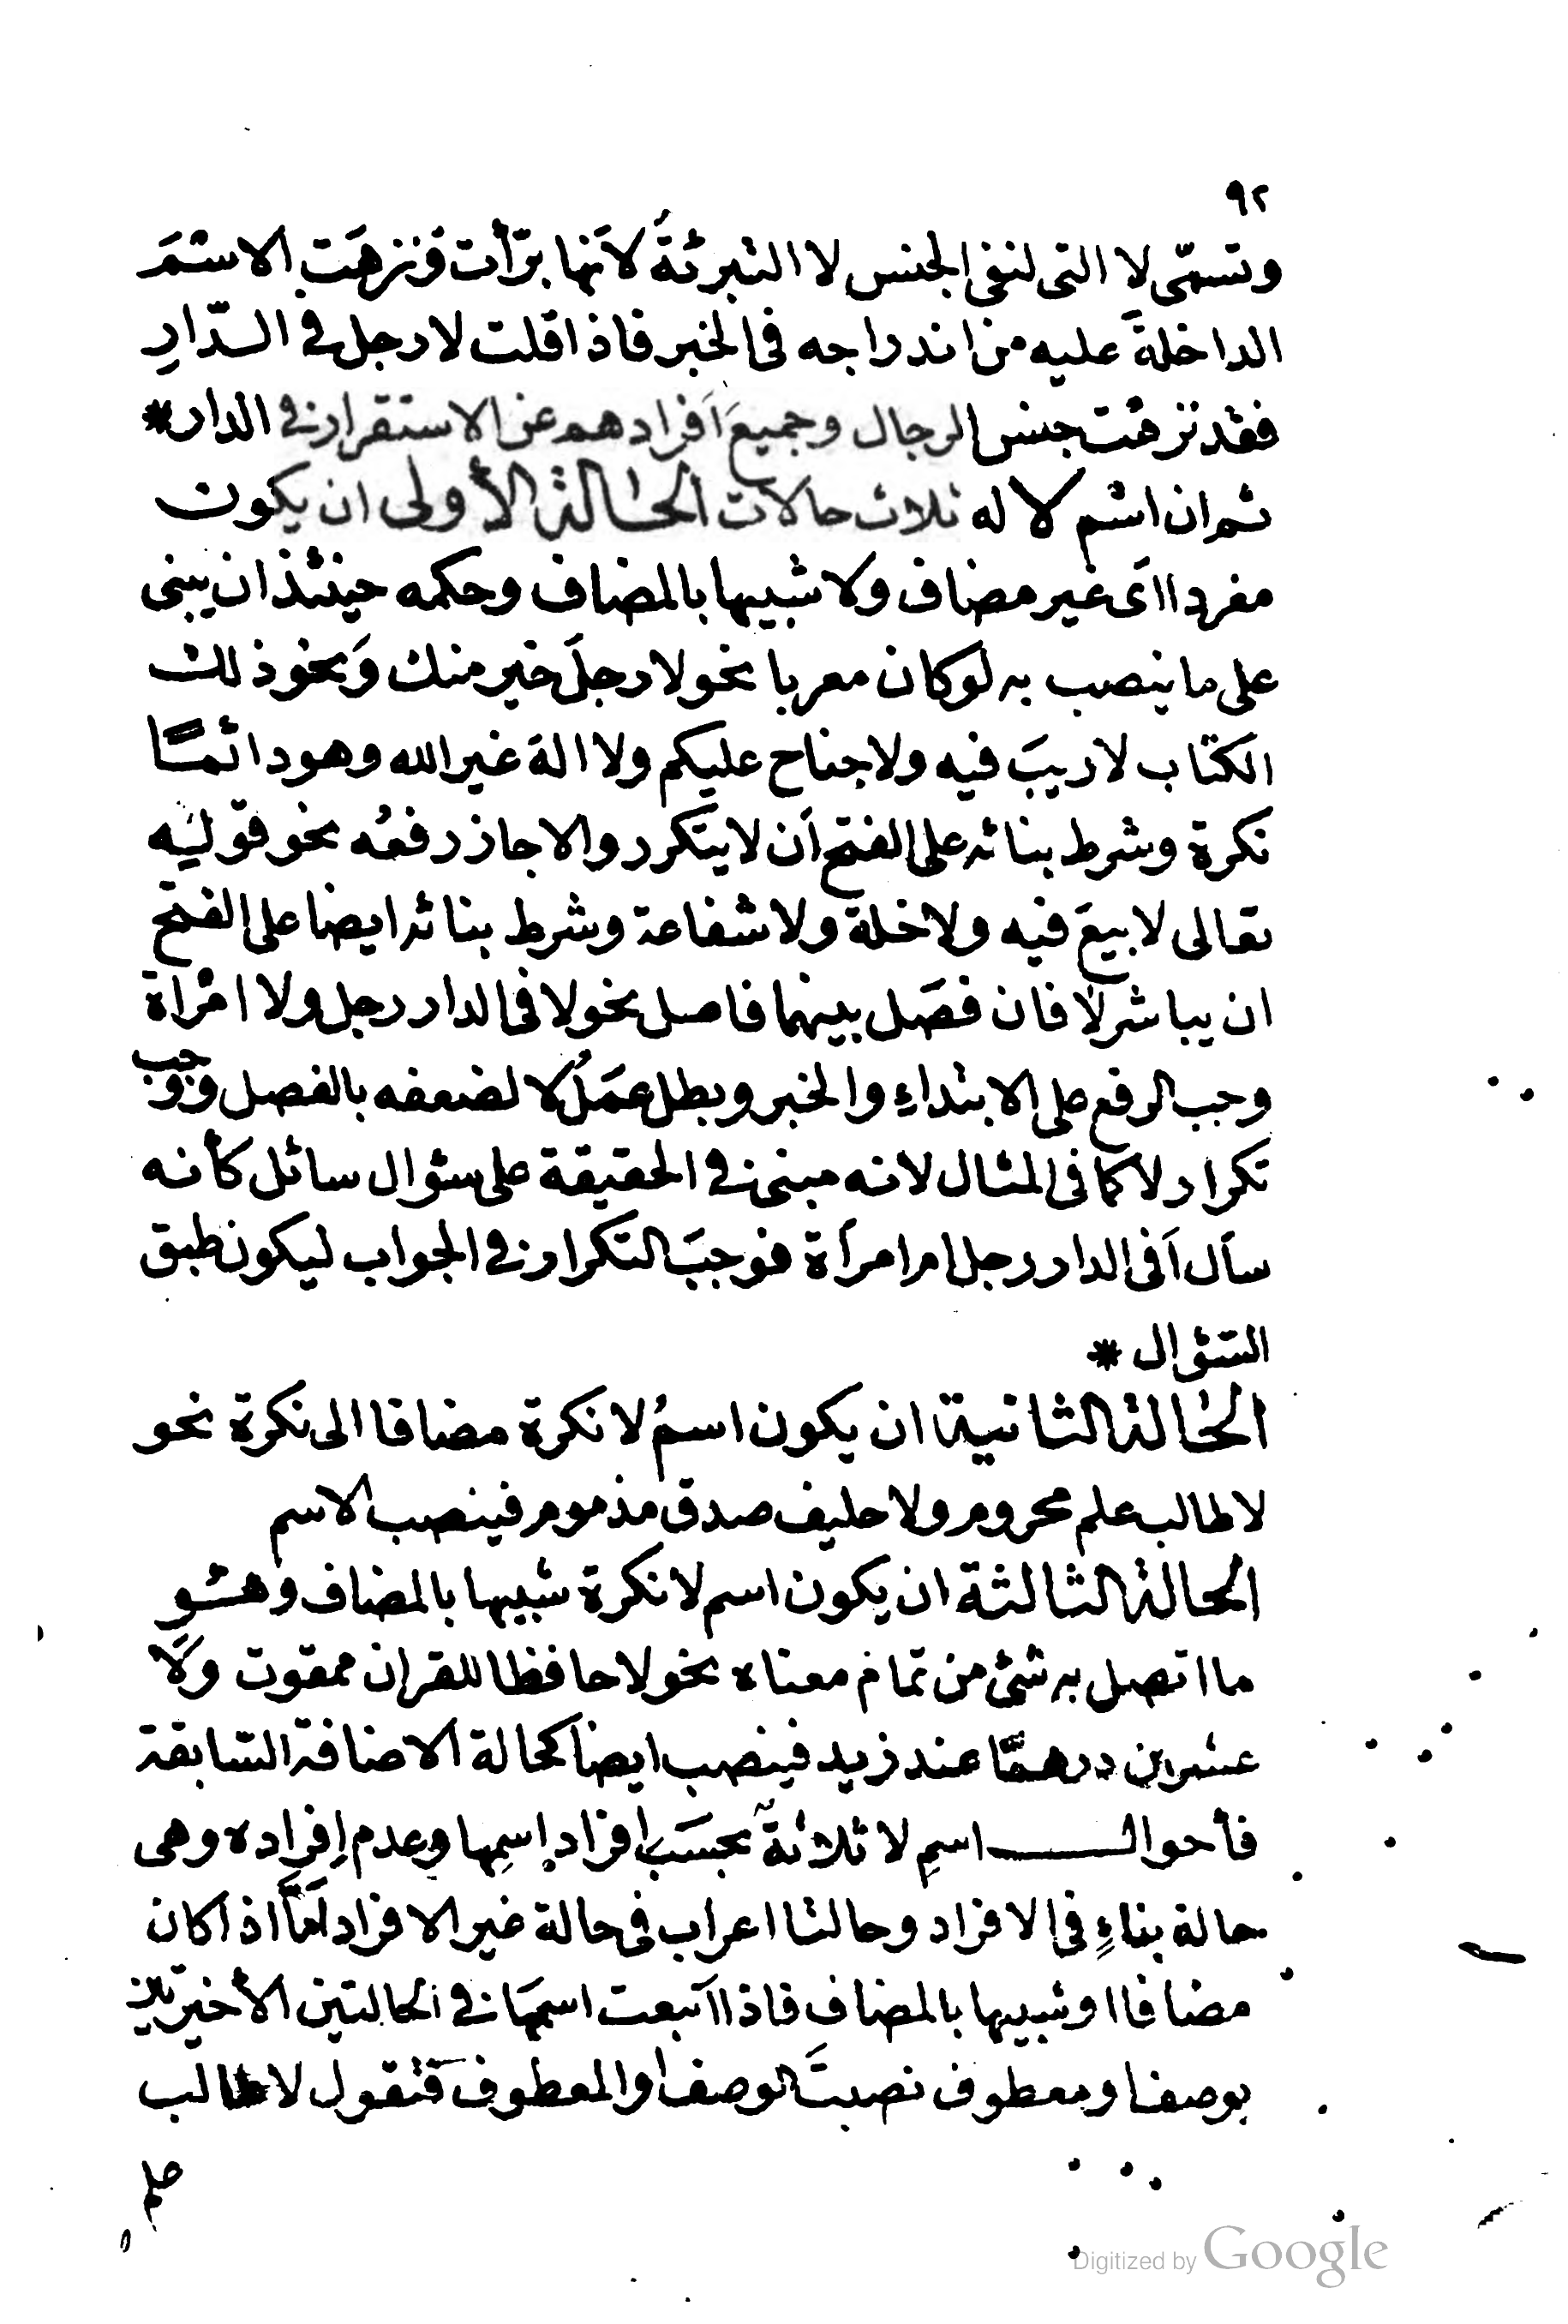 ٩٢
وتسمّى لا التى لنفى الجنس لا التبرئةَ لأنها برّأت ونزهَت الاسمَ
الداخلةَ عليه من اندراجه فى الخبر فاذا قلت لا رجل فى الدّارِ
فقد نزهت جنس الرجال وجميعَ اَفرادهم عن الاستقرار فى الدار *
ثم ان اسم لا له ثلاث حالات الحالة الأولى ان يكون
مفردا اى غير مضاف ولا شبيها بالمضاف وحكمه حينئذ ان يبنى
على ما ينصب به لو كان معربا نحو لا رجلَ خير منك وَنحو ذلك
الكتاب لا ريبَ فيه ولا جناح عليكم ولا الهَ غير الله وهو دائمًا
نكرة وشرط بنائه على الفتح اَن لا يتكرر والا جاز رفعُه نحو قوله
تعالى لا بيعَ فيه ولا خلة ولا شفاعة وشرط بنائه ايضا على الفتح
ان يباشر لا فان فصَل بينهما فاصل نحو لا فى الدار رجل ولا امرأة
وجب الرفع على الابتداءِ والخبر وبطل عمَلُ لا لضعفه بالفصل ووجب
تكرار لا كما فى المثال لانه مبنى فى الحقيقة على سؤال سائل كأنه
سأل اَفى الدار رجل ام امرأة فوجبَ التكرار فى الجواب ليكون طبق
السّؤال *
الحالة الثانية ان يكون اسمُ لا نكرة مضافا الى نكرة نحو
لا طالب علم محروم ولا حليف صدق مذموم فينصب الاسم
الحالة الثالثة ان يكون اسم لا نكرة شبيها بالمضاف وهو
ما اتصل به شئ من تمام معناه نحو لا حافظا للقران ممقوت ولَا
عشرين درهمًا عند زيد فينصب ايضا كحالة الاضافة السّابقة
فأحوال اسمِ لا ثلاثةٌ بحسَب اِفراد اِسمِها وعدم اِفرِاده وهى
حالة بناءٍ فى الافراد وحالتا اعراب فى حالة غير الافراد اَمّا اذا كان
مضافا او شبيها بالمضاف فاذا اَتبعت اسمهَا فى الحالتين الأخيرتين
بوصف او معطوف نصبتَ الوصف او المعطوف فتقول لا طالب
علم
Digitized by Google